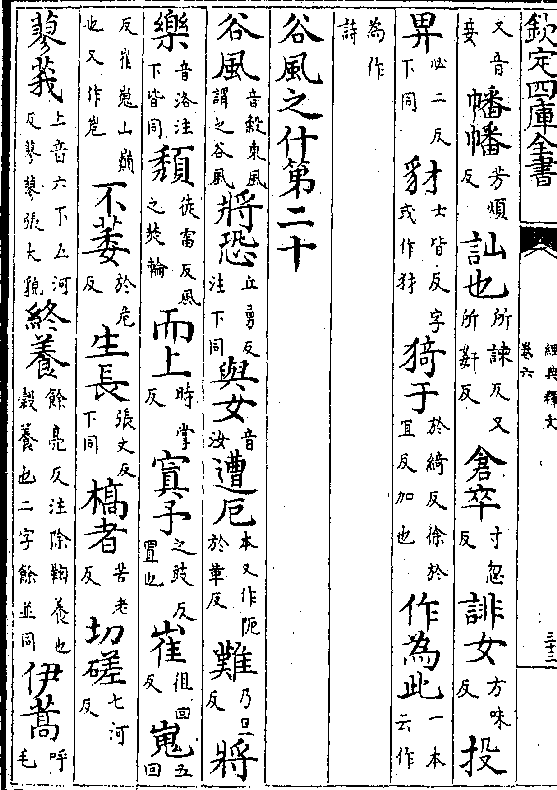 欽定四庫全書
經典釋文
卷六
三十三
又音妾幡幡芳煩反訕也所諫反又所姦反倉卒寸忽反誹女方味反投
畀必二反下同豺士皆反字或作犲猗于於綺反徐於宜反加也作為此一本云作
為作詩
谷風之什第二十
谷風音穀東風謂之谷風將恐丘勇反注下同與女音汝遭厄本又作阨於革反難乃旦反將
樂音洛注下皆同頹徒雷反風之焚輪而上時掌反寘予之豉反置也崔徂回反嵬五回
反崔嵬山巔也又作嵬不萎於危反生長張丈反下同槁者苦老反切磋七河反
蓼莪上音六下五河反蓼蓼長大貌終養餘亮反注除鞠養也穀養也二字餘並同伊蒿呼毛